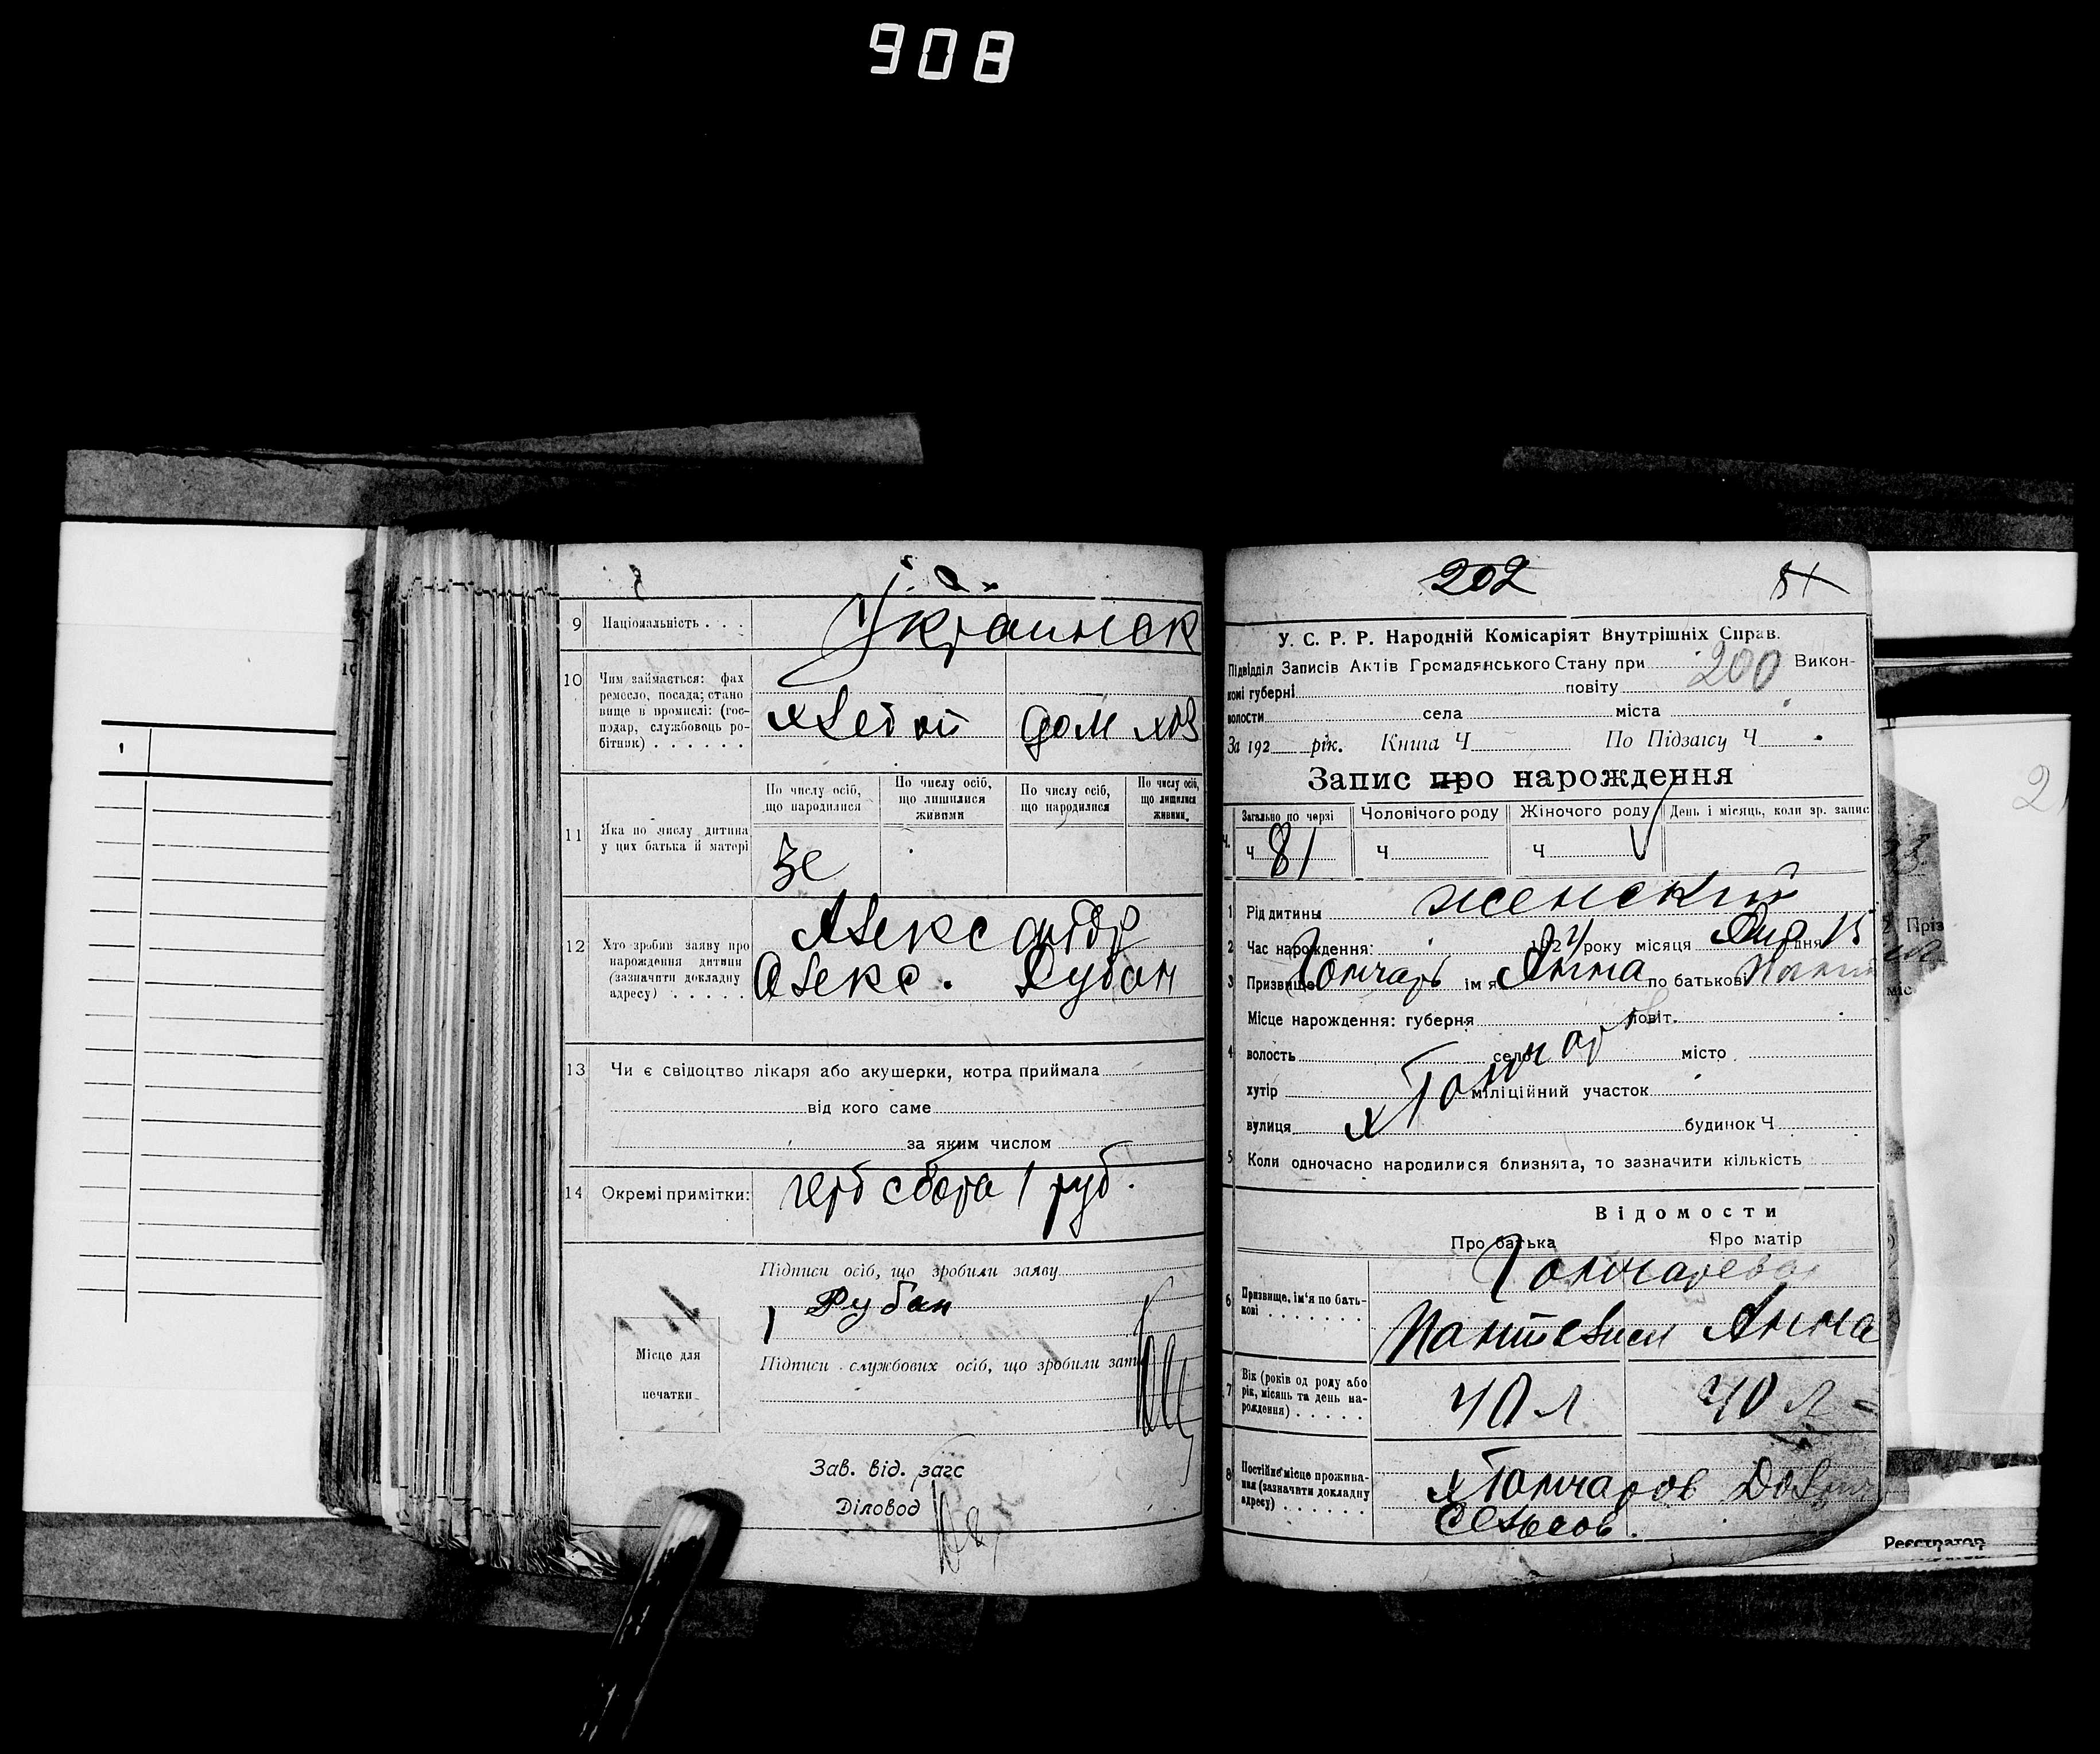 908
9 Національність . . .
Украинск
10 Чим займається: фах
ремесло, посада; стано
вище в промислі: (гос-
подар, службовець ро-
бітник) . . . . . .
хлебоп дом хоз
11 Яка по числу дитина
у цих батька й матері
По числу осіб,
що народилися
По числу осіб,
що лишилися
живими
По числу осіб,
що народилися
По числу осіб,
що лишилися
живими
3е
12 Хто зробив заяву про
нарождення дитини
(зазначити докладну
адресу) . . . . .
Александр
Алекс. Рубан
13 Чи є свідоцтво лікаря або акушерки, котра приймала
від кого саме
за яким числом
14 Окремі примітки:
герб сбора 1 руб.
Підписи осіб, що зробили заяву
Рубан
Місце для
печатки
Підписи службових осіб, що зробили запис
Зав. від. загс
Діловод
202 81
У. С. Р. Р. Народній Комісаріят Внутрішніх Справ.
Підвідділ Записів Актів Громадянського Стану при 200 Викон-
комі губерні повіту
волости села міста
За 192 рік. Книга Ч По Підзагсу Ч
Запис про нарождення
Загально по черзі Чоловічого роду Жіночого роду День і місяць, коли зр. запис
Ч 81 Ч Ч
1 Рід дитини женский
2 Час нарождення: 1924 року місяця дня 15
3 Призвище Гончарь ім'я Анна по батькові
Місце нарождення: губерня повіт
4 волость село місто
хутір міліційний участок
вулиця будинок Ч
х Гончаров
5 Коли одночасно народилися близнята, то зазначити кількість
Відомости
Про батька Про матір
Гончарева
6 Призвище, ім'я по бать-
кові . . . . . . .
Пантелеи Анна
7 Вік (років од роду або
рік, місяць та день на-
рождення) . . . . .
40 л 40 л
8 Постійне місце прожива-
ння (зазначити докладну
адресу) . . . . . .
х Гончаров
сельсов.
Реєстратор